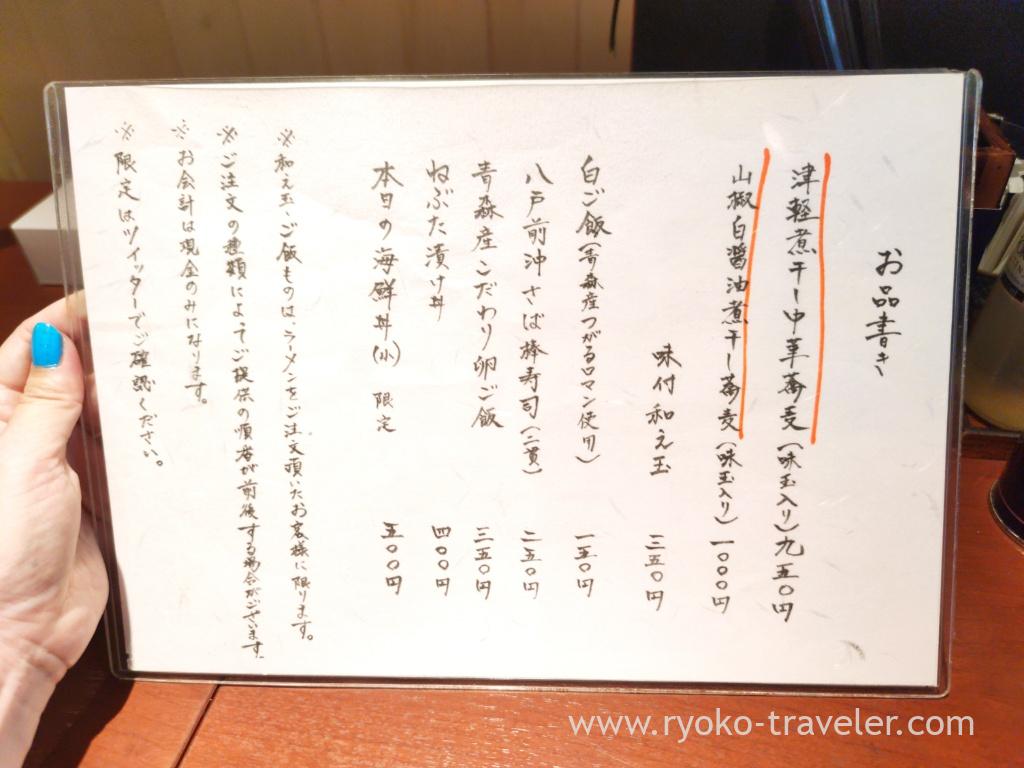 お品書き
津軽煮干し中華蕎麦(味玉入り)九五〇円
山椒白醤油煮干し蕎麦(味玉入り)一〇〇〇円
味付和え玉 二五〇円
白ご飯(青森産つがるロマン使用)一五〇円
八戸前沖さば棒寿司(二貫)二五〇円
青森産こだわり卵ご飯 三五〇円
ねぶた漬け丼 四〇〇円
本日の海鮮丼(小) 限定 五〇〇円
※和え玉、ご飯ものは、ラーメンをご注文頂いたお客様に限ります。
※ご注文の種類によってご提供の順番が前後する場合がございます。
※お会計は現金のみになります。
※限定はツイッターでご確認ください。
www.ryoko-traveler.com